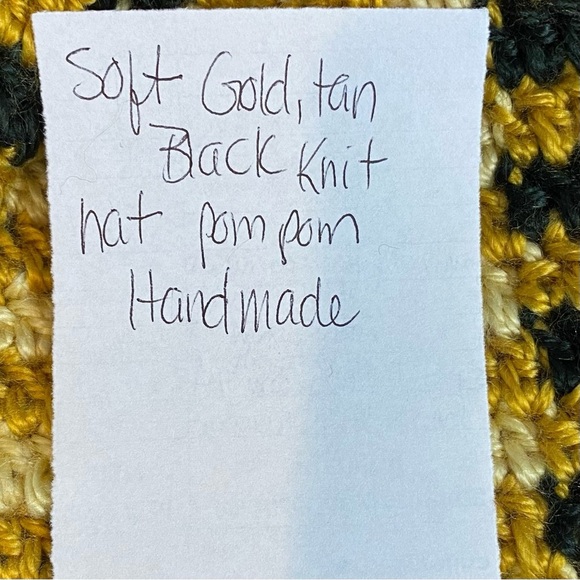 Soft Gold, tan
Black Knit
hat pom pom
Handmade